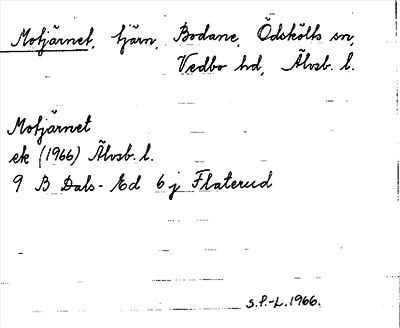 Motjärnet, tjärn, Bodane, Ödskölts sn,
Vedbo hd, Älvsb. l.
Motjärnet
ek (1966) Älvsb. l.
9 B Dals-Ed 6 j Flaterud
S.P.-L. 1966.